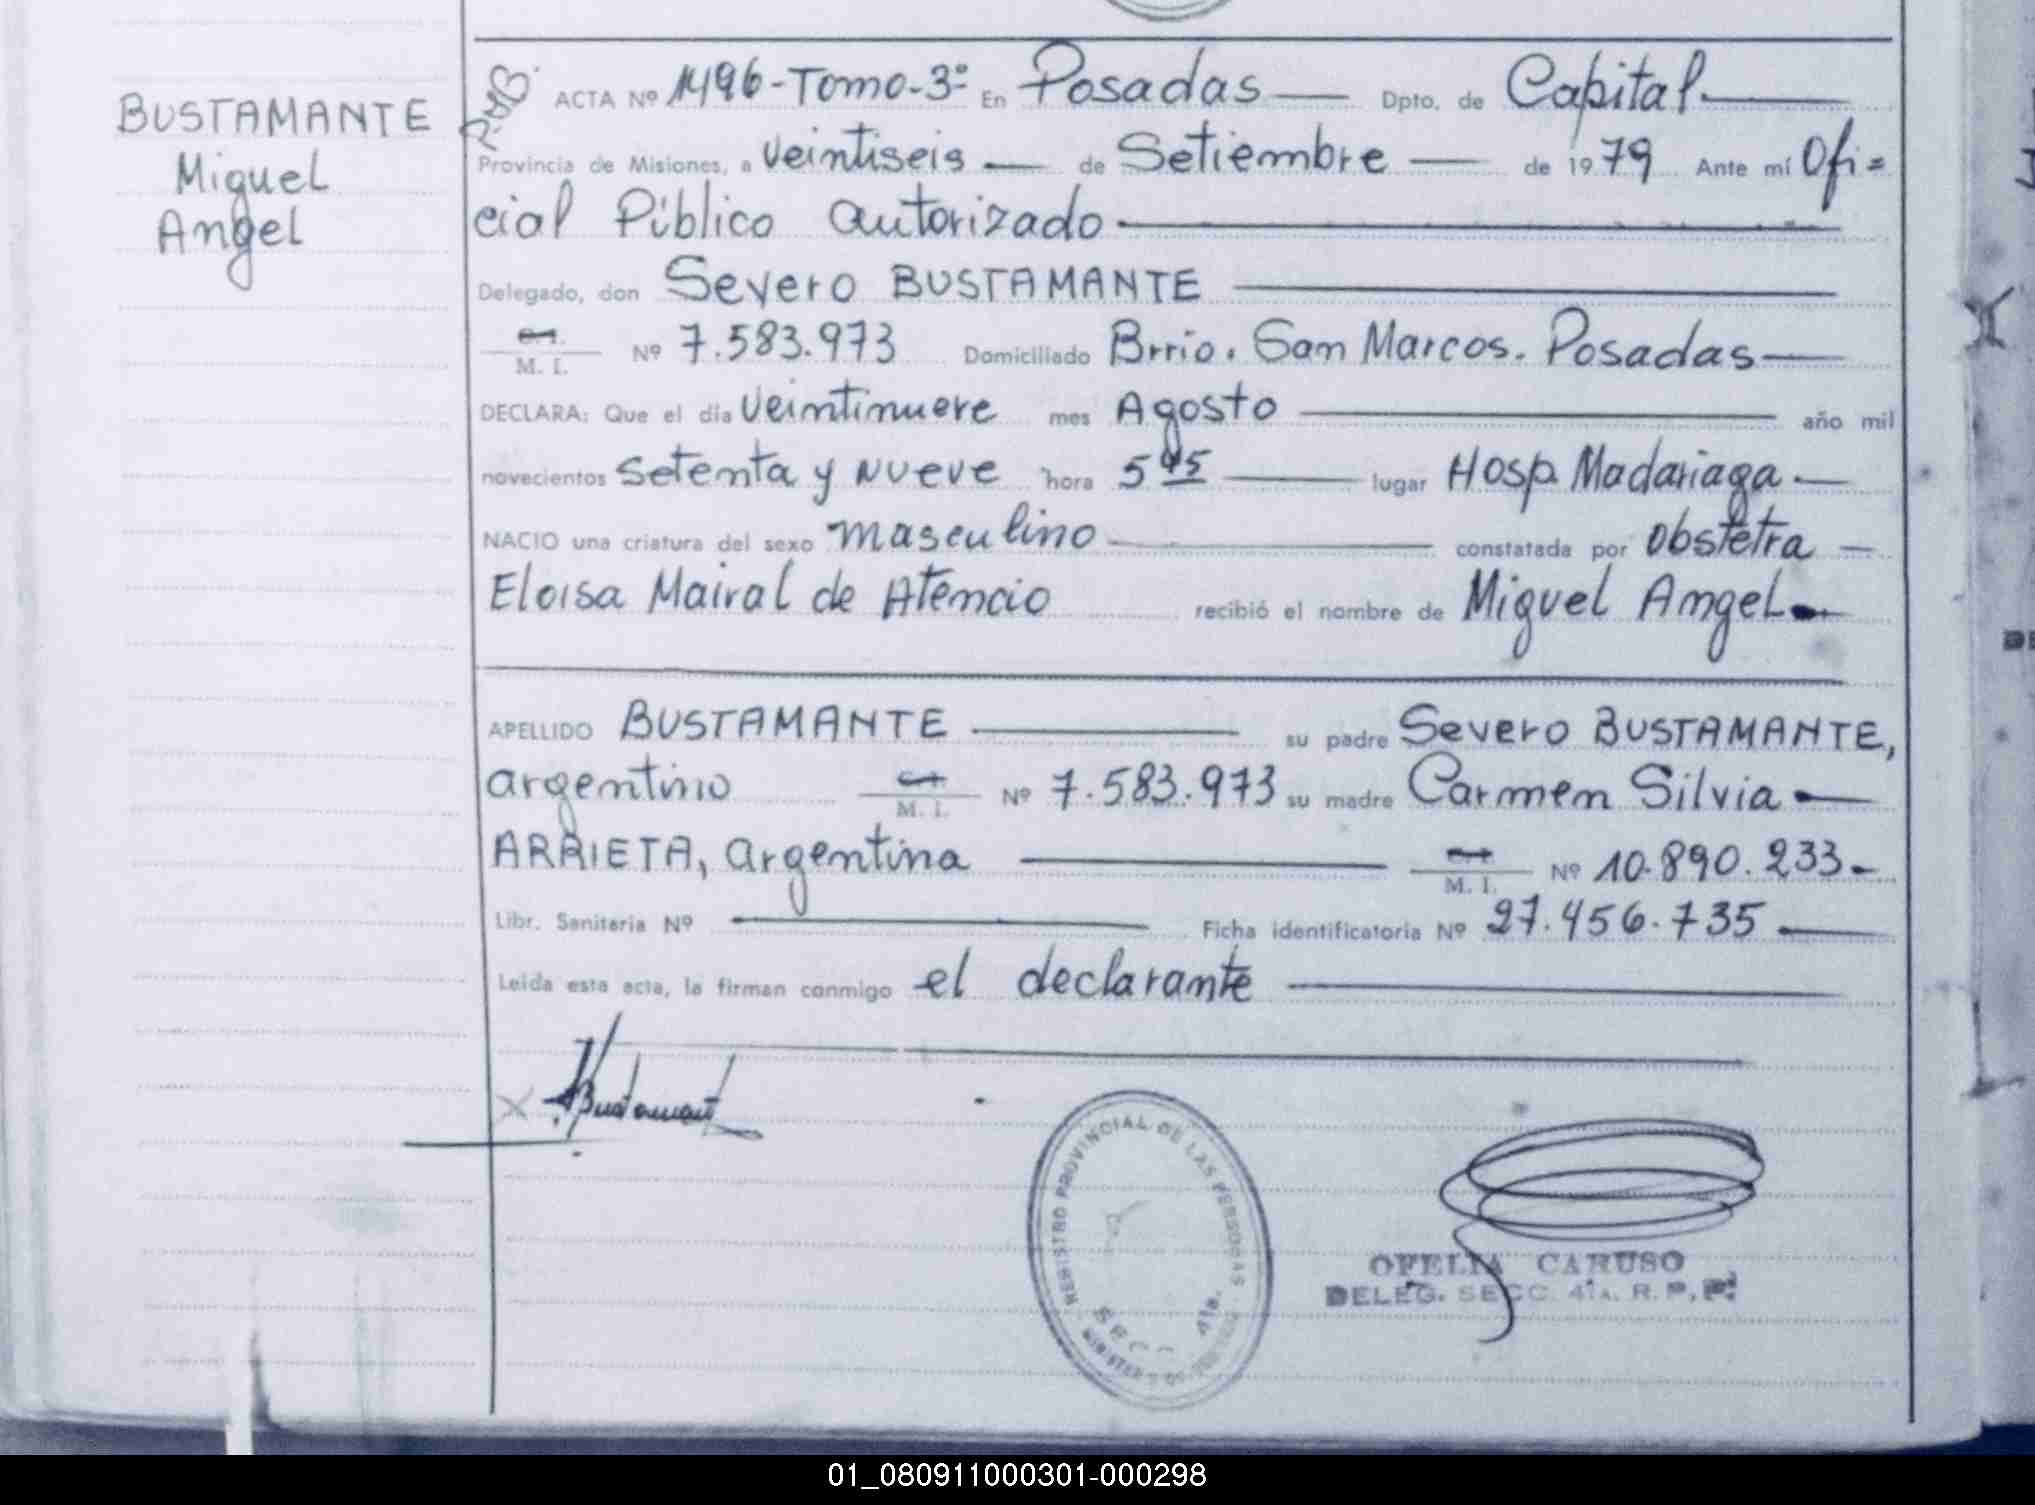 BUSTAMANTE
Miguel
Angel
ACTA Nº 1496-Tomo-3º En Posadas Dpto. de Capital
Provincia de Misiones, a veintiseis de Setiembre de 1979 Ante mí Ofi=
cial Público autorizado
Delegado, don Severo BUSTAMANTE
M. I. Nº 7.583.973 Domiciliado Brrio. San Marcos. Posadas
DECLARA: Que el día veintinueve mes Agosto año mil
novecientos setenta y nueve hora 5 45 lugar Hosp. Madariaga.
NACIO una criatura del sexo masculino constatada por obstetra
Eloisa Mairal de Atencio recibió el nombre de Miguel Angel
APELLIDO BUSTAMANTE su padre Severo BUSTAMANTE,
argentino M. I. Nº 7.583.973 su madre Carmen Silvia
ARRIETA, argentina M. I. Nº 10.890.233
Libr. Sanitaria Nº Ficha identificatoria Nº 27.456.735
Leída esta acta, la firman conmigo el declarante
REGISTRO PROVINCIAL DE LAS PERSONAS
Secc 4ta.
OFELIA CARUSO
DELEG. SECC. 4TA. R. P. P.
01_080911000301-000298